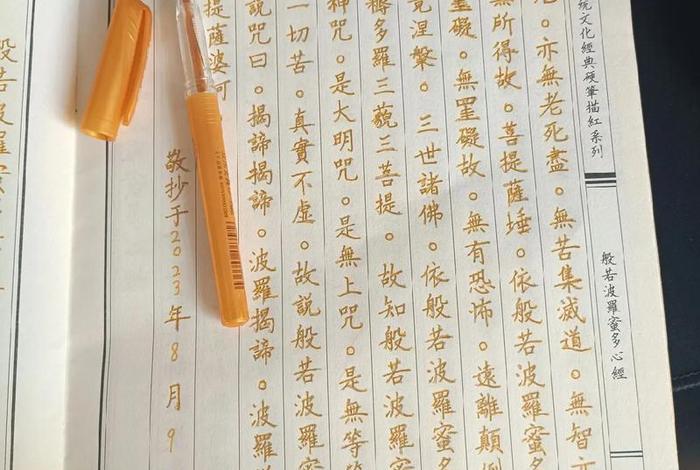 統文化經典硬筆描紅系列
般若波羅蜜多心經
亦無老死盡。無苦集滅道。無智亦
無所得故。菩提薩埵。依般若波羅蜜多
罣礙。無罣礙故。無有恐怖。遠離顛倒
竟涅槃。三世諸佛。依般若波羅蜜多
耨多羅三藐三菩提。故知般若波羅
神咒。是大明咒。是無上咒。是無等
一切苦。真實不虛。故説般若波羅蜜
説咒曰。揭諦揭諦。波羅揭諦。波羅
提薩婆
敬抄于2023年8月9
般若波羅蜜